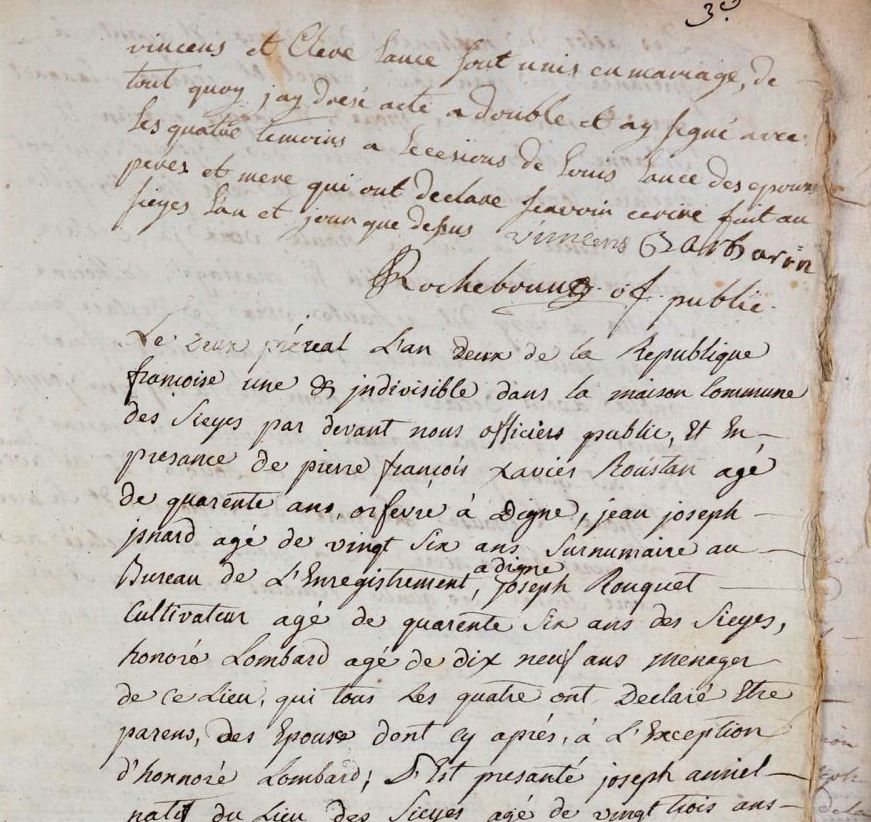 3e.
vincens et Cleve Lance sont unis en mariage, de
tout quoy jay dresé acte a double et ay signé avec
les quatre temoins a lecesions de Louis Lance des epoux
peres et mere qui ont declare scavoir ecrire fait au
sieyes l'an et jour que depus vincens Barbarin
Rochebrun of public.
Le deux floreal L'an deux de la Republique
francoise une & jndivisible dans la maison Commune
des Sieyes par devant nous officiers public, Et En
presance de pierre francois xavier Roustan agé
de quarente ans, orfevré à Digne, jean joseph
jsnard agé de vingt six ans Surnumaire au
Bureau de L'Enregistrement, a digne, joseph Rouquet
Cultivateur agé de quarente six ans des Sieyes,
honoré Lombard agé de dix neuf ans menager
de ce Lieu, qui tous les quatre ont Declaré Etre
parens, des Epouse dont cy aprés, à L'Exception
d'honnoré Lombard; S'Est presanté joseph anniel
natif du Lieu des Sieyes agé de vingt trois ans